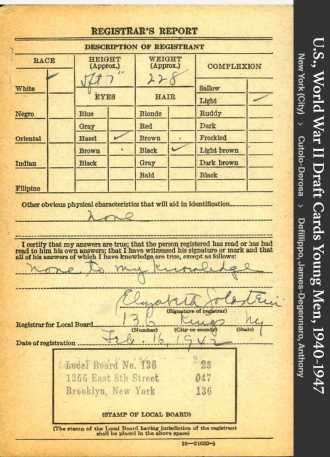 REGISTRAR'S REPORT
DESCRIPTION OF REGISTRANT
RACE HEIGHT (Approx.) WEIGHT (Approx.) COMPLEXION
5 ft 7" 228
White ✓ Sallow
EYES HAIR Light ✓
Negro Blue Blonde Ruddy
Gray Red Dark
Oriental Hazel ✓ Brown Freckled
Brown Black ✓ Light brown
Indian Black Gray Dark brown
Bald Black
Filipino
Other obvious physical characteristics that will aid in identification
None
I certify that my answers are true; that the person registered has read or has had
read to him his own answers; that I have witnessed his signature or mark and that
all of his answers of which I have knowledge are true, except as follows:
None to my knowledge
Elizabeth Goldstein
(Signature of registrar)
Registrar for Local Board 136 Kings NY
(Number) (City or county) (State)
Date of registration Feb. 16, 1942
Local Board No. 136 23
1356 East 8th Street 047
Brooklyn, New York 136
(STAMP OF LOCAL BOARD)
(The stamp of the Local Board having jurisdiction of the registrant
shall be placed in the above space)
16—21630-2
U.S., World War II Draft Cards Young Men, 1940-1947
New York (City) > Cutolo-Derosa > Defillippo, James-Degennaro, Anthony